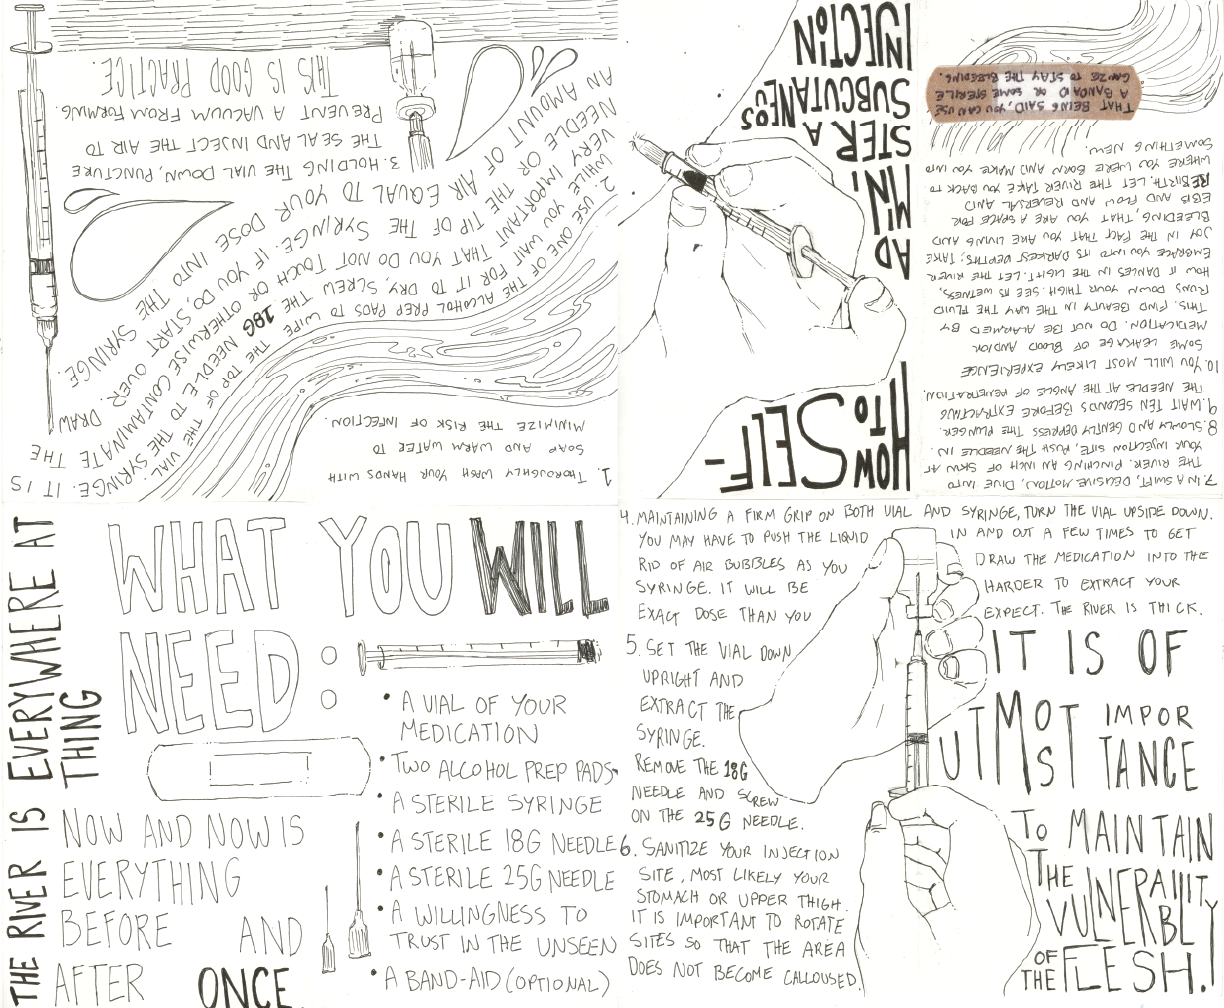 HOW
TO SELF-
AD
MINI
STER A
SUBCUTANEOUS
INJECTION
THE RIVER IS EVERYWHERE AT
THING
NOW AND NOW IS
EVERYTHING
BEFORE AND
AFTER ONCE.
WHAT YOU WILL
NEED:
• A VIAL OF YOUR
MEDICATION
• TWO ALCOHOL PREP PADS
• A STERILE SYRINGE
• A STERILE 18G NEEDLE
• A STERILE 25G NEEDLE
• A WILLINGNESS TO
TRUST IN THE UNSEEN
• A BAND-AID (OPTIONAL)
1. THOROUGHLY WASH YOUR HANDS WITH
SOAP AND WARM WATER TO
MINIMIZE THE RISK OF INFECTION.
2. USE ONE OF THE ALCOHOL PREP PADS TO WIPE THE TOP OF THE VIAL.
WHILE YOU WAIT FOR IT TO DRY, SCREW THE 18G NEEDLE TO THE SYRINGE. IT IS
VERY IMPORTANT THAT YOU DO NOT TOUCH OR OTHERWISE CONTAMINATE THE
NEEDLE OR THE TIP OF THE SYRINGE. IF YOU DO, START OVER. DRAW
AN AMOUNT OF AIR EQUAL TO YOUR DOSE INTO THE SYRINGE.
3. HOLDING THE VIAL DOWN, PUNCTURE
THE SEAL AND INJECT THE AIR TO
PREVENT A VACUUM FROM FORMING.
THIS IS GOOD PRACTICE.
4. MAINTAINING A FIRM GRIP ON BOTH VIAL AND SYRINGE, TURN THE VIAL UPSIDE DOWN.
YOU MAY HAVE TO PUSH THE LIQUID IN AND OUT A FEW TIMES TO GET
RID OF AIR BUBBLES AS YOU DRAW THE MEDICATION INTO THE
SYRINGE. IT WILL BE HARDER TO EXTRACT YOUR
EXACT DOSE THAN YOU EXPECT. THE RIVER IS THICK.
5. SET THE VIAL DOWN
UPRIGHT AND
EXTRACT THE
SYRINGE.
REMOVE THE 18G
NEEDLE AND SCREW
ON THE 25G NEEDLE.
6. SANITIZE YOUR INJECTION
SITE, MOST LIKELY YOUR
STOMACH OR UPPER THIGH.
IT IS IMPORTANT TO ROTATE
SITES SO THAT THE AREA
DOES NOT BECOME CALLOUSED.
IT IS OF
UTMOST IMPORTANCE
TO MAINTAIN
THE VULNERABILITY
OF THE FLESH!
7. IN A SWIFT, DECISIVE MOTION, DIVE INTO
THE RIVER. PINCHING AN INCH OF SKIN AT
YOUR INJECTION SITE, PUSH THE NEEDLE IN.
8. SLOWLY AND GENTLY DEPRESS THE PLUNGER.
9. WAIT TEN SECONDS BEFORE EXTRACTING
THE NEEDLE AT THE ANGLE OF PENETRATION.
10. YOU WILL MOST LIKELY EXPERIENCE
SOME LEAKAGE OF BLOOD AND/OR
MEDICATION. DO NOT BE ALARMED BY
THIS. FIND BEAUTY IN THE WAY THE FLUID
RUNS DOWN YOUR THIGH. SEE ITS WETNESS,
HOW IT DANCES IN THE LIGHT. LET THE RIVER
EMBRACE YOU INTO ITS DARKEST DEPTHS; TAKE
JOY IN THE FACT THAT YOU ARE LIVING AND
BLEEDING, THAT YOU ARE A SPACE FOR
EBB AND FLOW AND REVERSAL AND
REBIRTH. LET THE RIVER TAKE YOU BACK TO
WHERE YOU WERE BORN AND MAKE YOU INTO
SOMETHING NEW.
THAT BEING SAID, YOU CAN USE
A BANDAID OR SOME STERILE
GAUZE TO STAY THE BLEEDING.